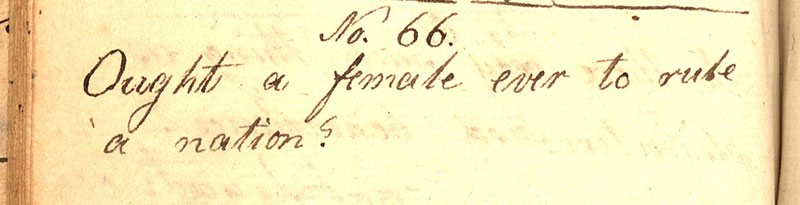 No. 66.
Ought a female ever to rule
a nation?